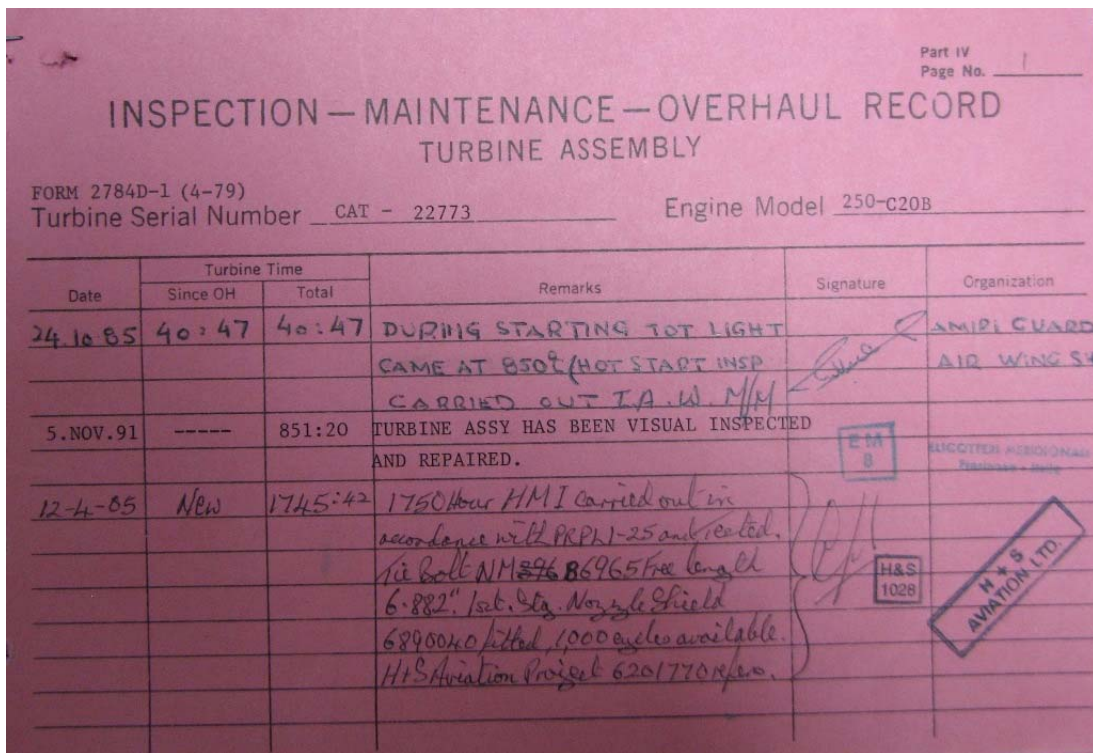 Part IV
Page No. 1
INSPECTION — MAINTENANCE — OVERHAUL RECORD
TURBINE ASSEMBLY
FORM 2784D-1 (4-79)
Turbine Serial Number CAT - 22773 Engine Model 250-C20B
Turbine Time
Date Since OH Total Remarks Signature Organization
24.10.85 40:47 40:47 DURING STARTING TOT LIGHT AMIRI GUARD
CAME AT 850°c/HOT START INSP AIR WING
CARRIED OUT I.A.W. M/M
5.NOV.91 ----- 851:20 TURBINE ASSY HAS BEEN VISUAL INSPECTED
AND REPAIRED.
EM
8
ELICOTTERI MERIDIONALI
Frosinone - Italia
12-4-05 New 1745:42 1750 Hour HMI carried out in
accordance with PRPL1-25 and Tested.
Tie Bolt NM B6965 Free length
6.882". 1st. Stg. Nozzle Shield
6890040 fitted, 1,000 cycles available.
H+S Aviation Project 6201770 refers.
H&S
1028
H + S
AVIATION LTD.